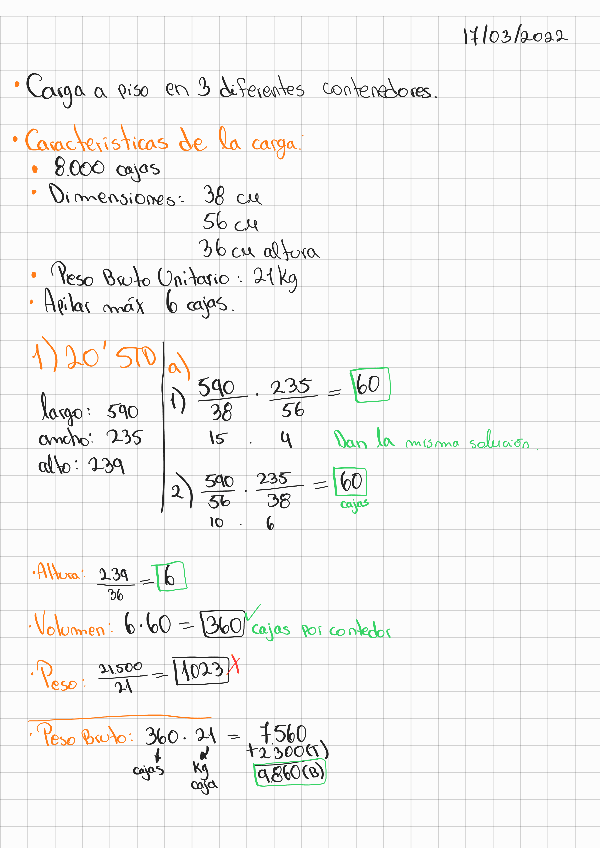 17/03/2022
• Carga a piso en 3 diferentes contenedores.
• Características de la carga:
• 8.000 cajas
• Dimensiones: 38 cm
56 cm
36 cm altura
• Peso Bruto Unitario: 21 kg
• Apilar máx 6 cajas.
1) 20' STD
largo: 590
ancho: 235
alto: 239
a)
1) 590/38 · 235/56 = 60
15 · 4
Dan la misma solución.
2) 590/56 · 235/38 = 60
cajas
10 · 6
• Altura: 239/36 = 6
• Volumen: 6·60 = 360 ✓ cajas por contedor
• Peso: 21.500/21 = 1023 X
• Peso Bruto: 360 · 21 = 7.560
cajas kg caja
+2.300(T)
9.860(B)